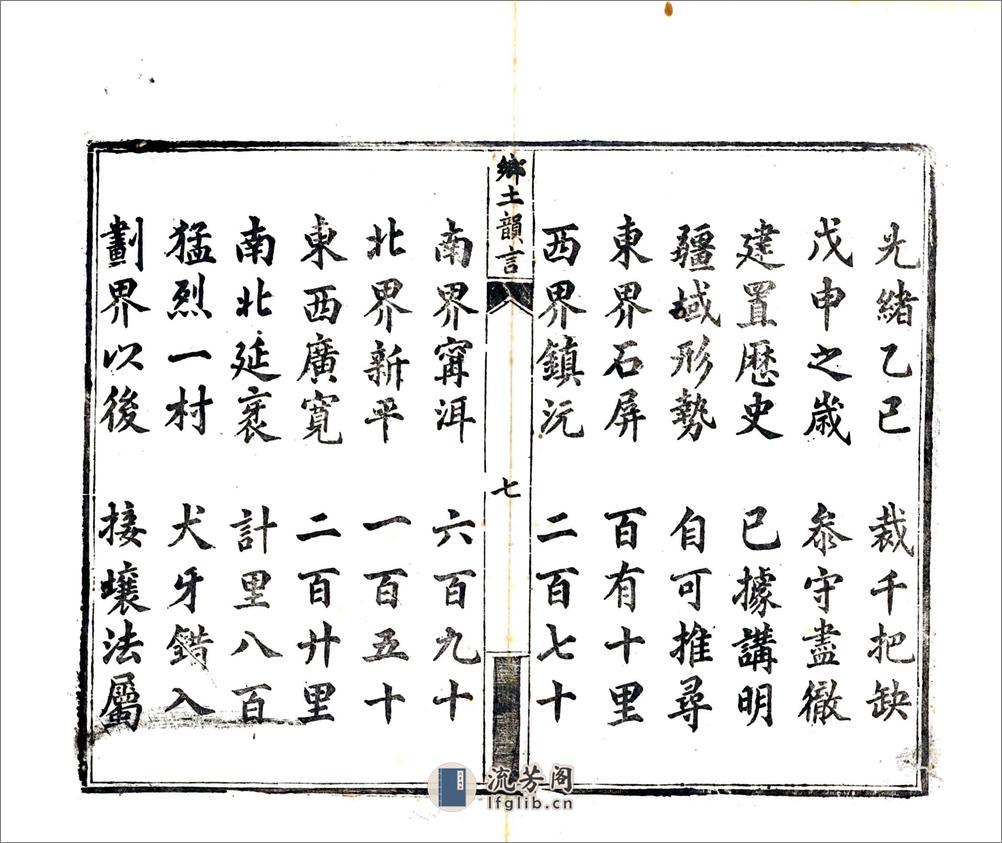 光緒乙巳 裁千把缺
戊申之歲 叅守盡徹
建置歷史 已據講明
疆域形勢 自可推尋
東界石屏 百有十里
西界鎮沅 二百七十
鄉土韻言
七
南界甯洱 六百九十
北界新平 一百五十
東西廣寬 二百廾里
南北延袤 計里八百
猛烈一村 犬牙錯入
劃界以後 接壤法屬
流芳阁
lfglib.cn